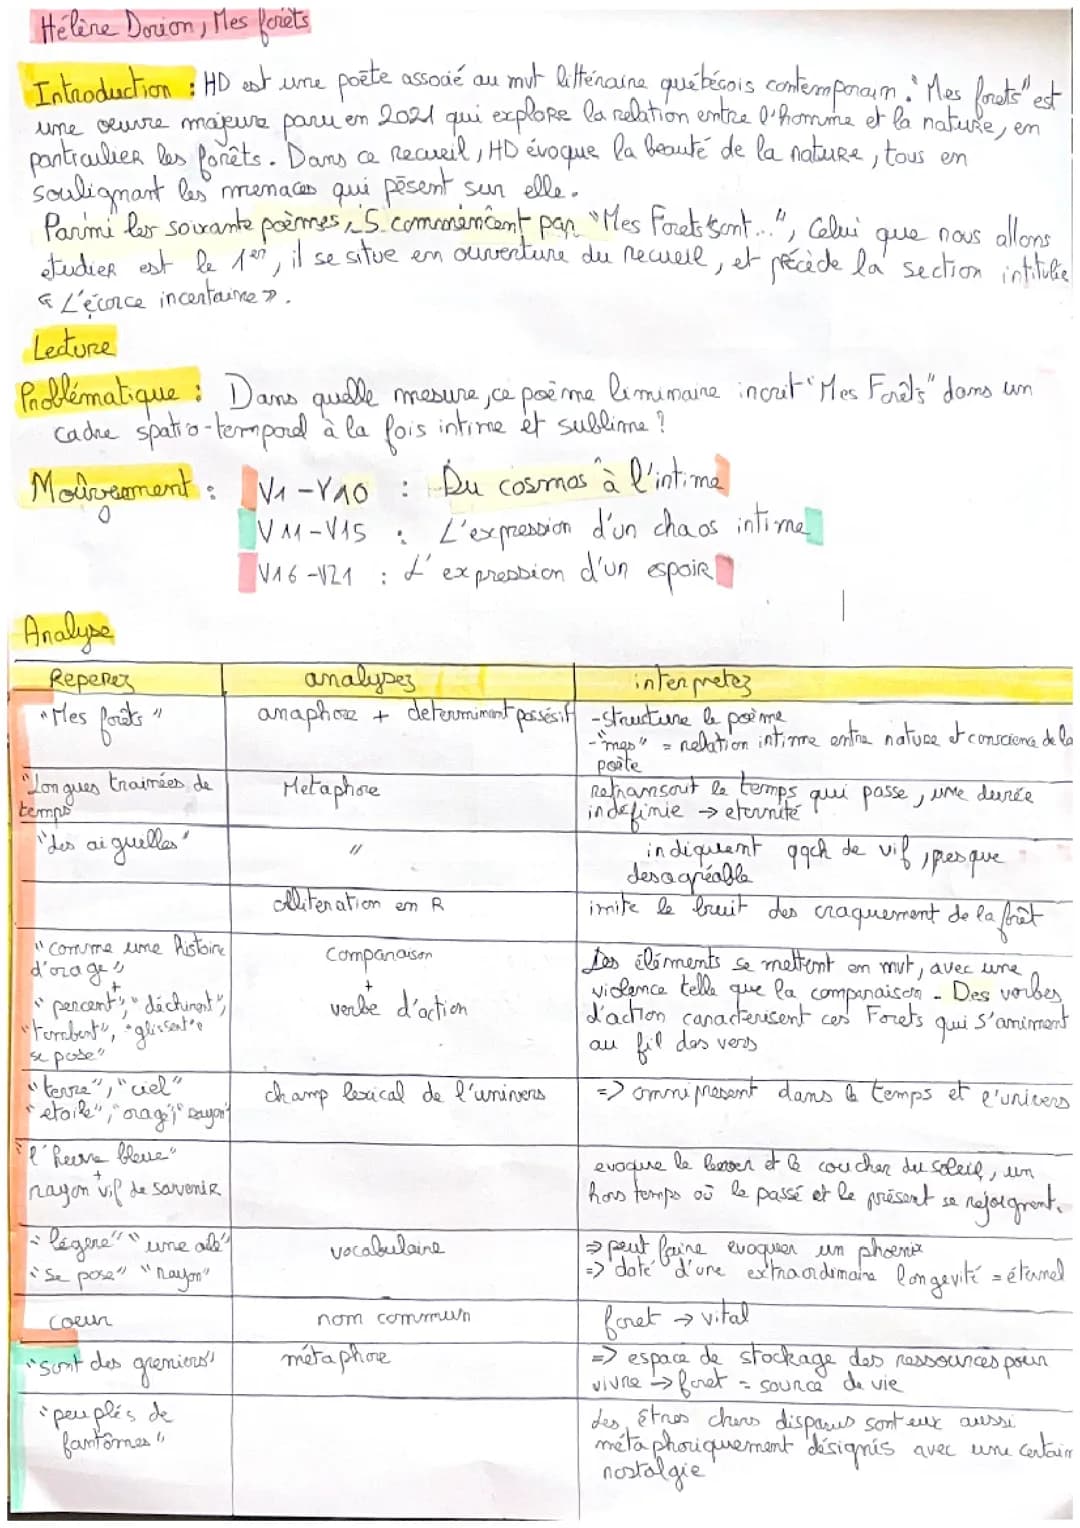 Hélène Dorion, Mes forêts
Introduction : HD est une poète associé au mvt littéraire québécois contemporain. "Mes forets" est
une œuvre majeure paru en 2021 qui explore la relation entre l'homme et la nature, en
particulier les forêts. Dans ce recueil, HD évoque la beauté de la nature, tous en
soulignant les menaces qui pèsent sur elle.
Parmi les soixante poèmes, 5 commencent par "Mes Forets sont...", Celui que nous allons
etudier est le 1er, il se situe en ouverture du recueil, et précède la section intitulée
« L'écorce incertaine ».
Lecture
Problématique : Dans quelle mesure, ce poème liminaire incrit "Mes Forêts" dans un
cadre spatio-temporel à la fois intime et sublime ?
Mouvement : V1-V10 : Du cosmos à l'intime
V11-V15 : L'expression d'un chaos intime
V16-V21 : L'expression d'un espoir
Analyse
Reperez analysez interpretez
"Mes forêts" anaphore + determinant possésif -structure le poème
-"mes" = relation intime entre nature et conscience de la
poète
"Longues trainées de Metaphore retranscrit le temps qui passe, une durée
temps" indéfinie → eternité
"des aiguelles" // indiquent qqch de vif, presque
desagréable
alliteration en R imite le bruit des craquement de la forêt
"comme une histoire Comparaison Des éléments se mettent en mvt, avec une
d'orage" + violence telle que la comparaison. Des verbes
+ verbe d'action d'action caracterisent ces Forets qui s'animent
"percent", "déchirent", au fil des vers
"tombent", "glissent"
se pose"
"terre", "ciel" champ lexical de l'univers => omnipresent dans le temps et l'univers
"etoile", "orage", "rayon"
"l'heure bleue" evoque le lever et le coucher du soleil, un
+ hors temps où le passé et le présent se rejoignent.
rayon vif de sovenir
"légère" "une aile" vocabulaire => peut faire evoquer un phoenix
"se pose" "rayon" => doté d'une extraordinaire longevité = éternel
coeur nom commun foret → vital
"sont des greniers" métaphore => espace de stockage des ressources pour
vivre → foret = source de vie
"peuplés de Les êtres chers disparus sont eux aussi
fantômes" métaphoriquement désignés avec une certain
nostalgie